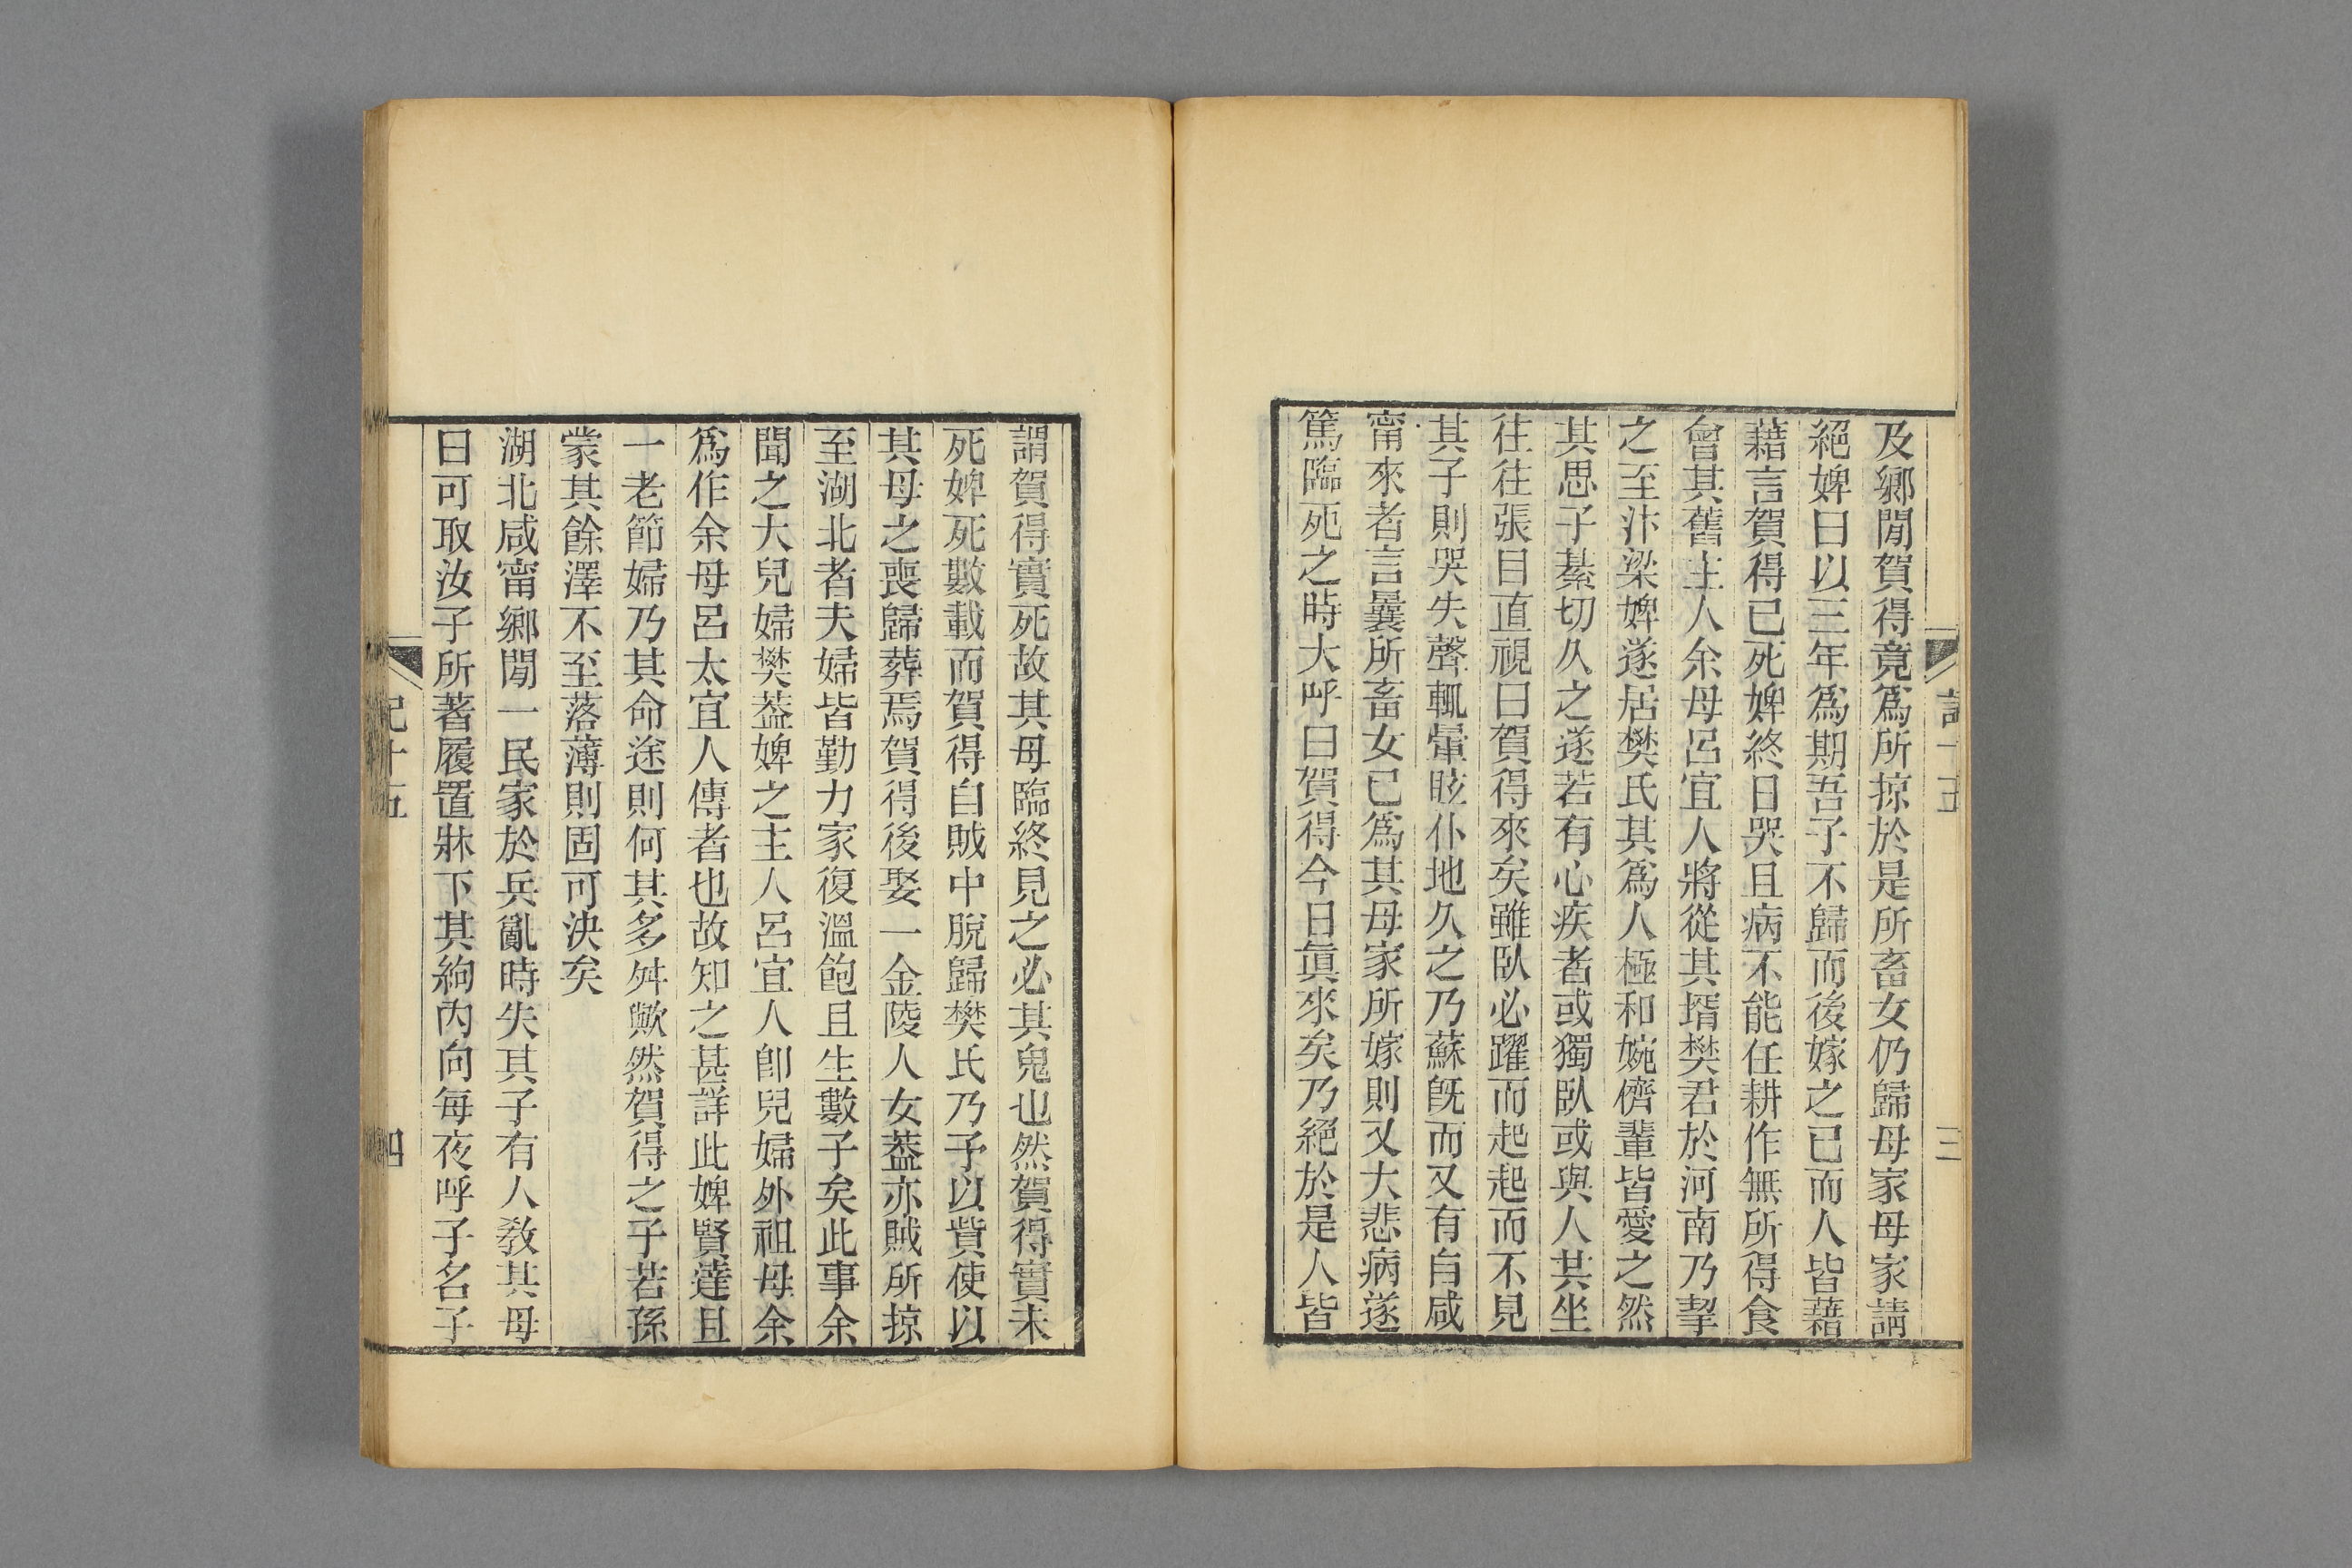 及鄉閒賀得竟爲所掠於是所畜女仍歸母家母家請
絕婢曰以三年爲期吾子不歸而後嫁之已而人皆藉
藉言賀得已死婢終日哭且病不能任耕作無所得食
會其舊主人余母呂宜人將從其壻樊君於河南乃挈
之至汴梁婢遂居樊氏其爲人極和婉儕輩皆愛之然
其思子綦切久之遂若有心疾者或獨臥或與人共坐
往往張目直視曰賀得來矣雖臥必躍而起起而不見
其子則哭失聲輒暈眩仆地久之乃蘇旣而又有自咸
甯來者言曩所畜女已爲其母家所嫁則又大悲病遂
篤臨死之時大呼曰賀得今日眞來矣乃絕於是人皆
三
謂賀得實死故其母臨終見之必其鬼也然賀得實未
死婢死數載而賀得自賊中脫歸樊氏乃予以貲使以
其母之喪歸葬焉賀得後娶一金陵人女葢亦賊所掠
至湖北者夫婦皆勤力家復溫飽且生數子矣此事余
聞之大兒婦樊葢婢之主人呂宜人卽兒婦外祖母余
爲作余母呂太宜人傳者也故知之甚詳此婢賢達且
一老節婦乃其命途則何其多舛歟然賀得之子若孫
蒙其餘澤不至落薄則固可決矣
湖北咸甯鄉閒一民家於兵亂時失其子有人敎其母
曰可取汝子所著履置牀下其絇內向每夜呼子名子
記十五
四